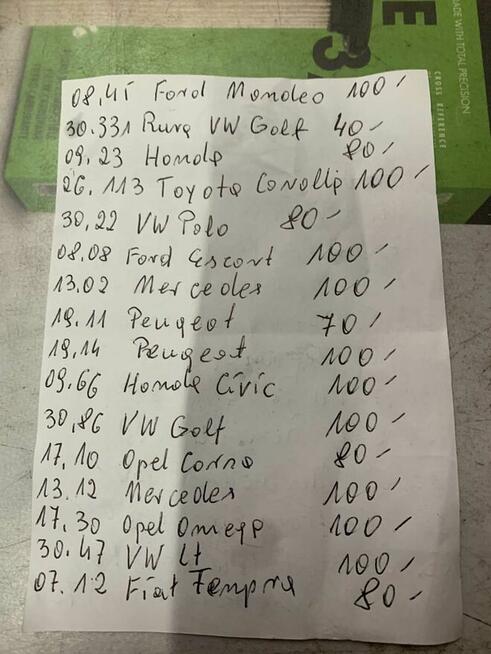 MADE WITH TOTAL PRECISION
CROSS REFERENCE
08,45 Ford Mondeo 100/
30.331 Rura VW Golf 40/
09.23 Honda 80/
26.113 Toyota Corolla 100/
30,22 VW Polo 80/
08.08 Ford Escort 100/
13.02 Mercedes 100/
19.11 Peugeot 70/
19,14 Peugeot 100/
09,66 Honda Civic 100/
30,86 VW Golf 100/
17,10 Opel Corsa 80/
13.12 Mercedes 100/
17,30 Opel Omega 100/
30.47 VW Lt 100/
07.12 Fiat Tempra 80/